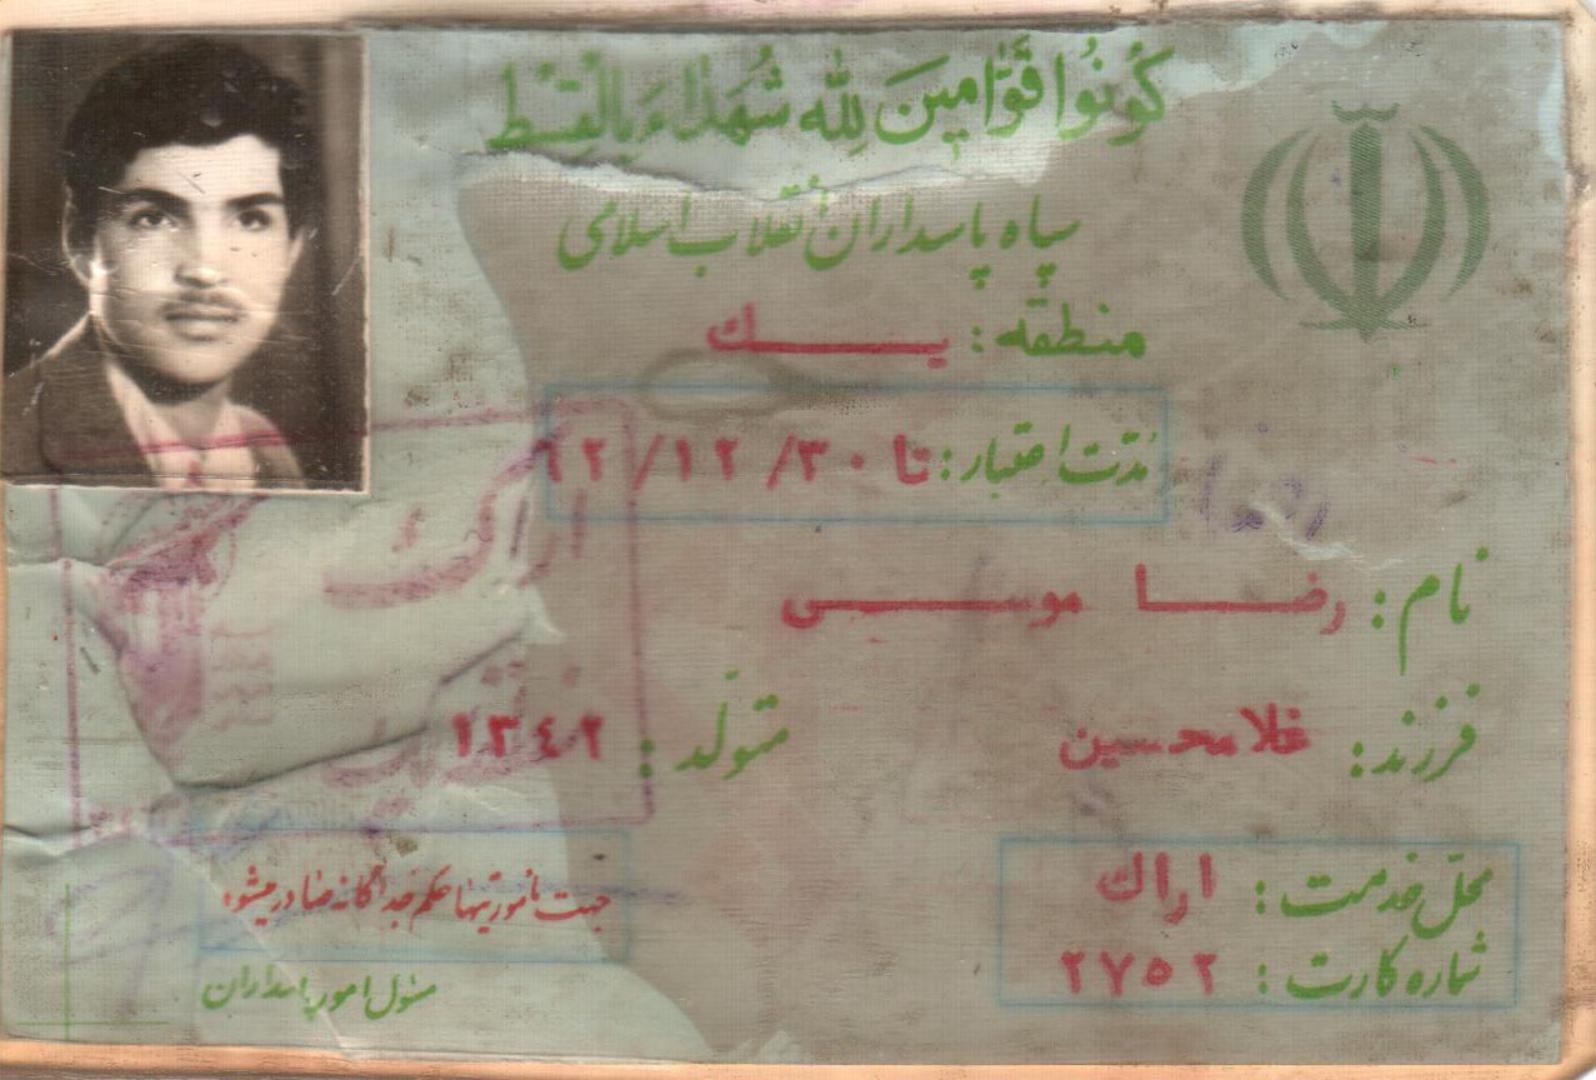 كُونُوا قَوَّامِينَ لِلَّه شُهَدَاءَ بِالْقِسْط
سپاه پاسداران انقلاب اسلامی
منطقه : یک
مدّت اعتبار : تا ۶۲/۱۲/۳۰
رضا
نام : رضا موسی
فرزند : غلامحسین
متولّد : ۱۳٤۲
اراک
محلّ خدمت : اراک
شماره کارت : ۲۷۵۲
جهت مأموریتها حکم جداگانه صادر میشود
مسئول امور پاسداران